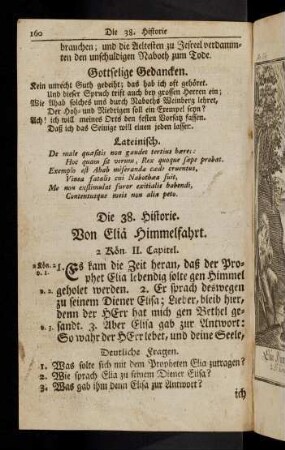 160 Die 38. Historie
brauchen; und die Aeltesten zu Jesreel verdammten
den unschuldigen Naboth zum Tode.
Gottselige Gedancken.
Kein unrecht Guth gedeiht; das hab ich oft gehöret.
Und dieser Spruch trift auch bey grossen Herren ein;
Wie Ahab solches uns durch Naboths Weinberg lehret,
Der Hoh- und Niedrigen soll ein Exempel seyn?
Ach! ich will meines Orts den festen Vorsatz fassen.
Daß ich das Seinige will einem jeden lassen.
Lateinisch.
De male quæsitis non gaudet tertius hæres:
Hoc quam sit verum, Rex quoque sæpe probat.
Exemplo est Ahab miseranda cæde cruentus,
Vinea fatalis cui Nabothea fuit,
Me non exstimulat furor exitialis habendi,
Contentusque meis non aliena peto.
Die 38. Historie.
Von Eliä Himmelfahrt.
2 Kön. II. Capitel.
2 Kön. 2. v. 1. 1. Es kam die Zeit heran, daß der Prophet
Elia lebendig solte gen Himmel
v. 2. geholet werden. 2. Er sprach deswegen
zu seinem Diener Elisa; Lieber, bleib hier,
denn der HErr hat mich gen Bethel gesandt.
v. 3. 3. Aber Elisa gab zur Antwort:
So wahr der HErr lebet, und deine Seele,
Deutliche Fragen.
1. Was solte sich mit dem Propheten Elia zutragen?
2. Wie sprach Elia zu seinem Diener Elisa?
3. Was gab ihm denn Elisa zur Antwort?
ich